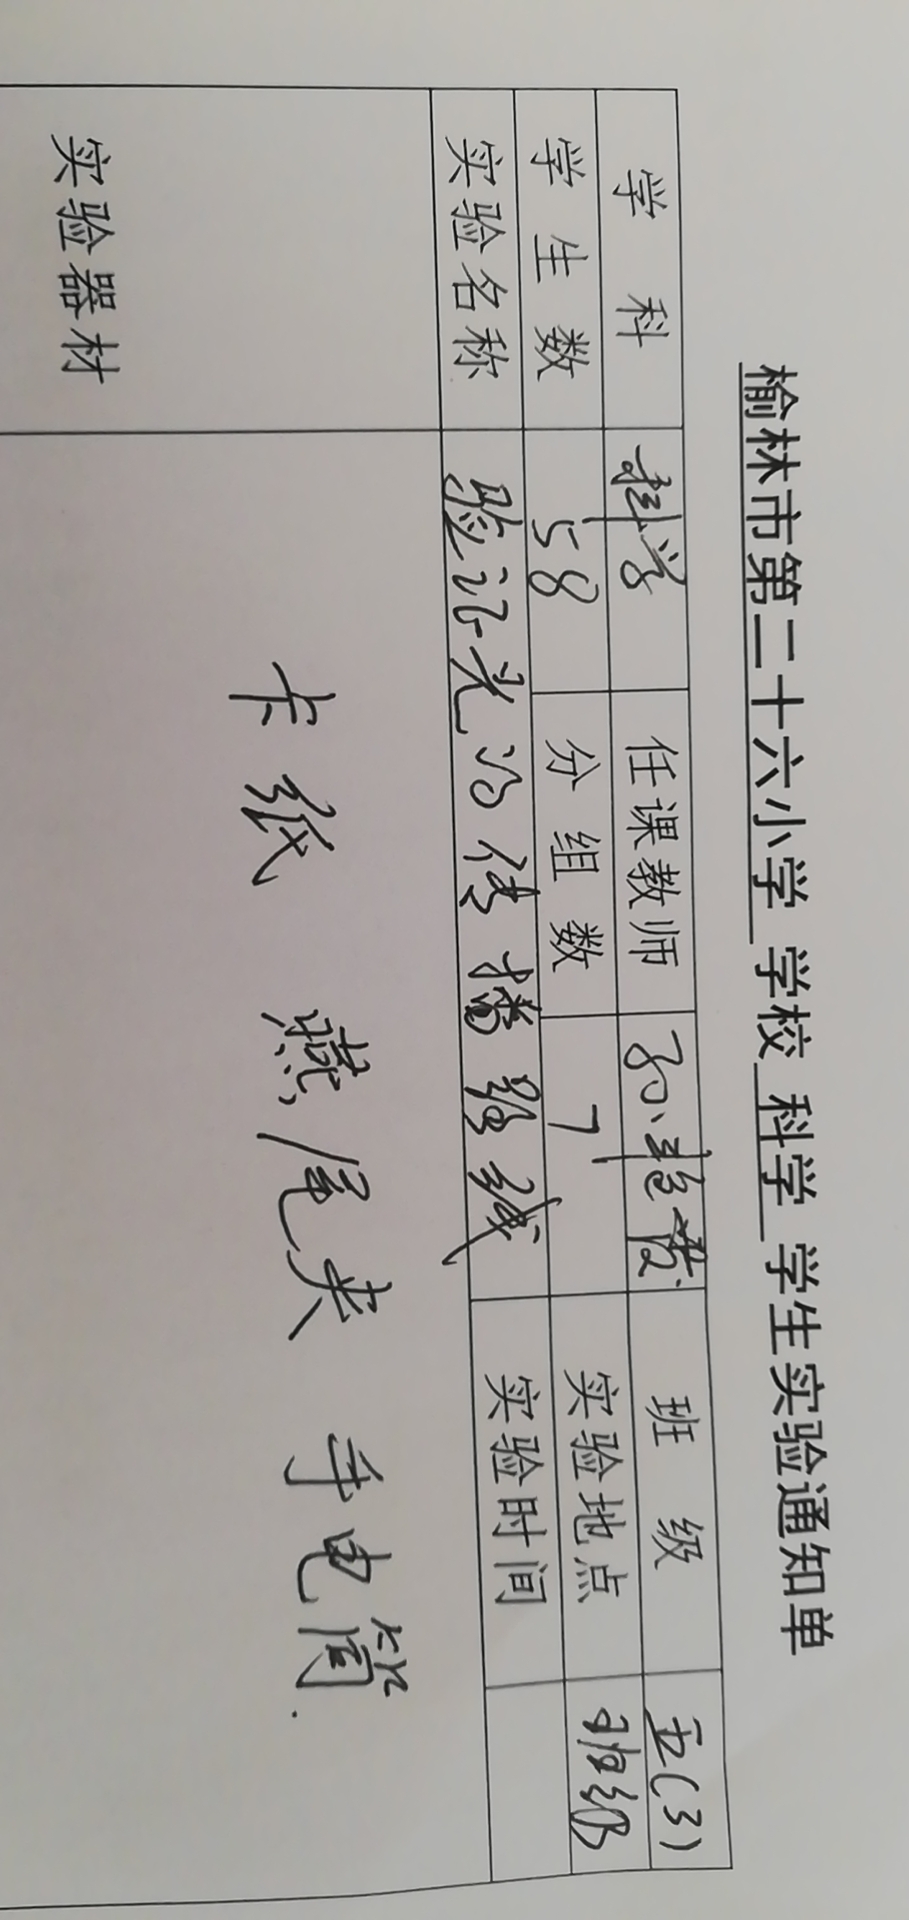 榆林市第二十六小学 学校 科学 学生实验通知单
学科 科学 任课教师 孙 班级 五(3)
学生数 58 分组数 7 实验地点 班级
实验名称 验证光的传播路线 实验时间
实验器材 卡纸 燕尾夹 手电筒.